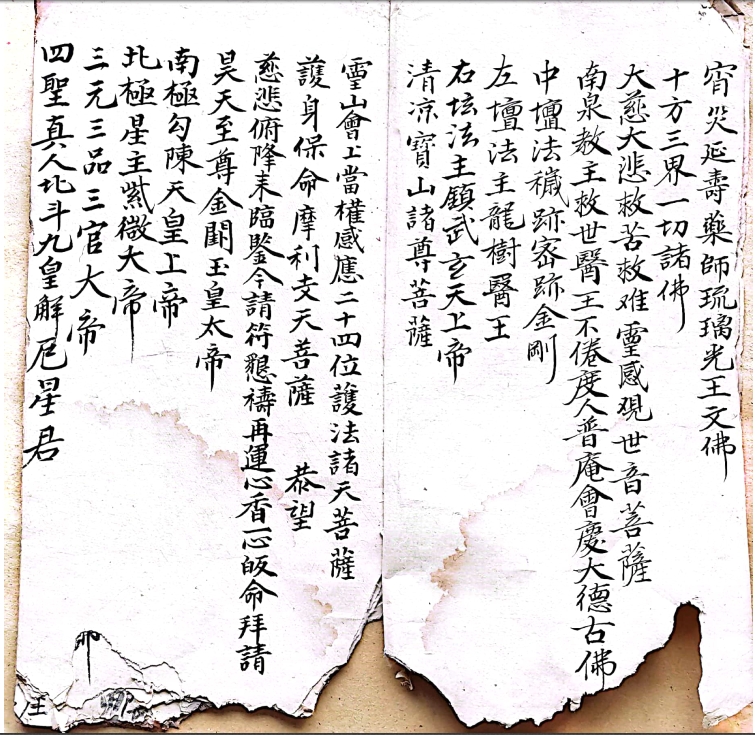 宵災延壽藥師琉璃光王文佛
十方三界一切諸佛
大慈大悲救苦救难靈感覌世音菩薩
南泉教主救世醫王不倦度人普庵會慶大德古佛
中壇法穢跡宻跡金剛
左壇法主龍樹醫王
右坛法主鎮武玄天上帝
清凉寶山諸尊菩薩
靈山會上當權感應二十四位護法諸天菩薩
護身保命摩利支天菩薩 恭望
慈悲俯降来臨鑒今請符懇禱再運心香一心皈命拜請
昊天至尊金闕玉皇太帝
南極勾陳天皇上帝
北極星主紫微大帝
三元三品三官大帝
四聖真人北斗九皇解厄星君